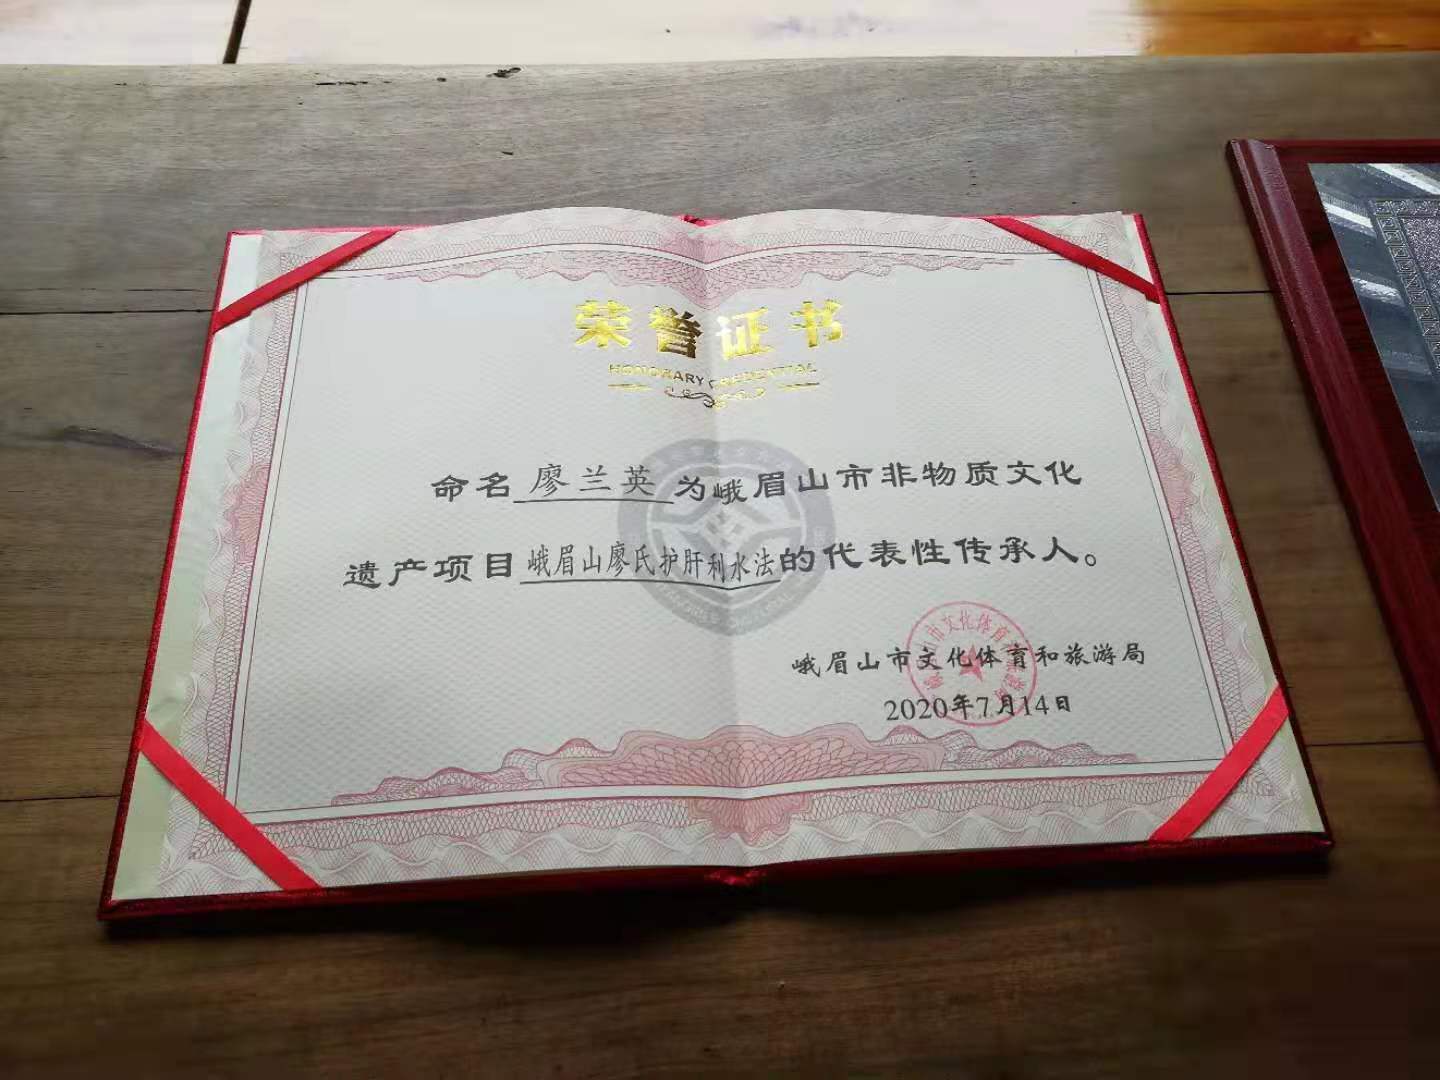 荣誉证书
HONORARY CREDENTIAL
命名 廖兰英 为峨眉山市非物质文化
遗产项目 峨眉山廖氏护肝利水法 的代表性传承人。
峨眉山市文化体育和旅游局
2020年7月14日